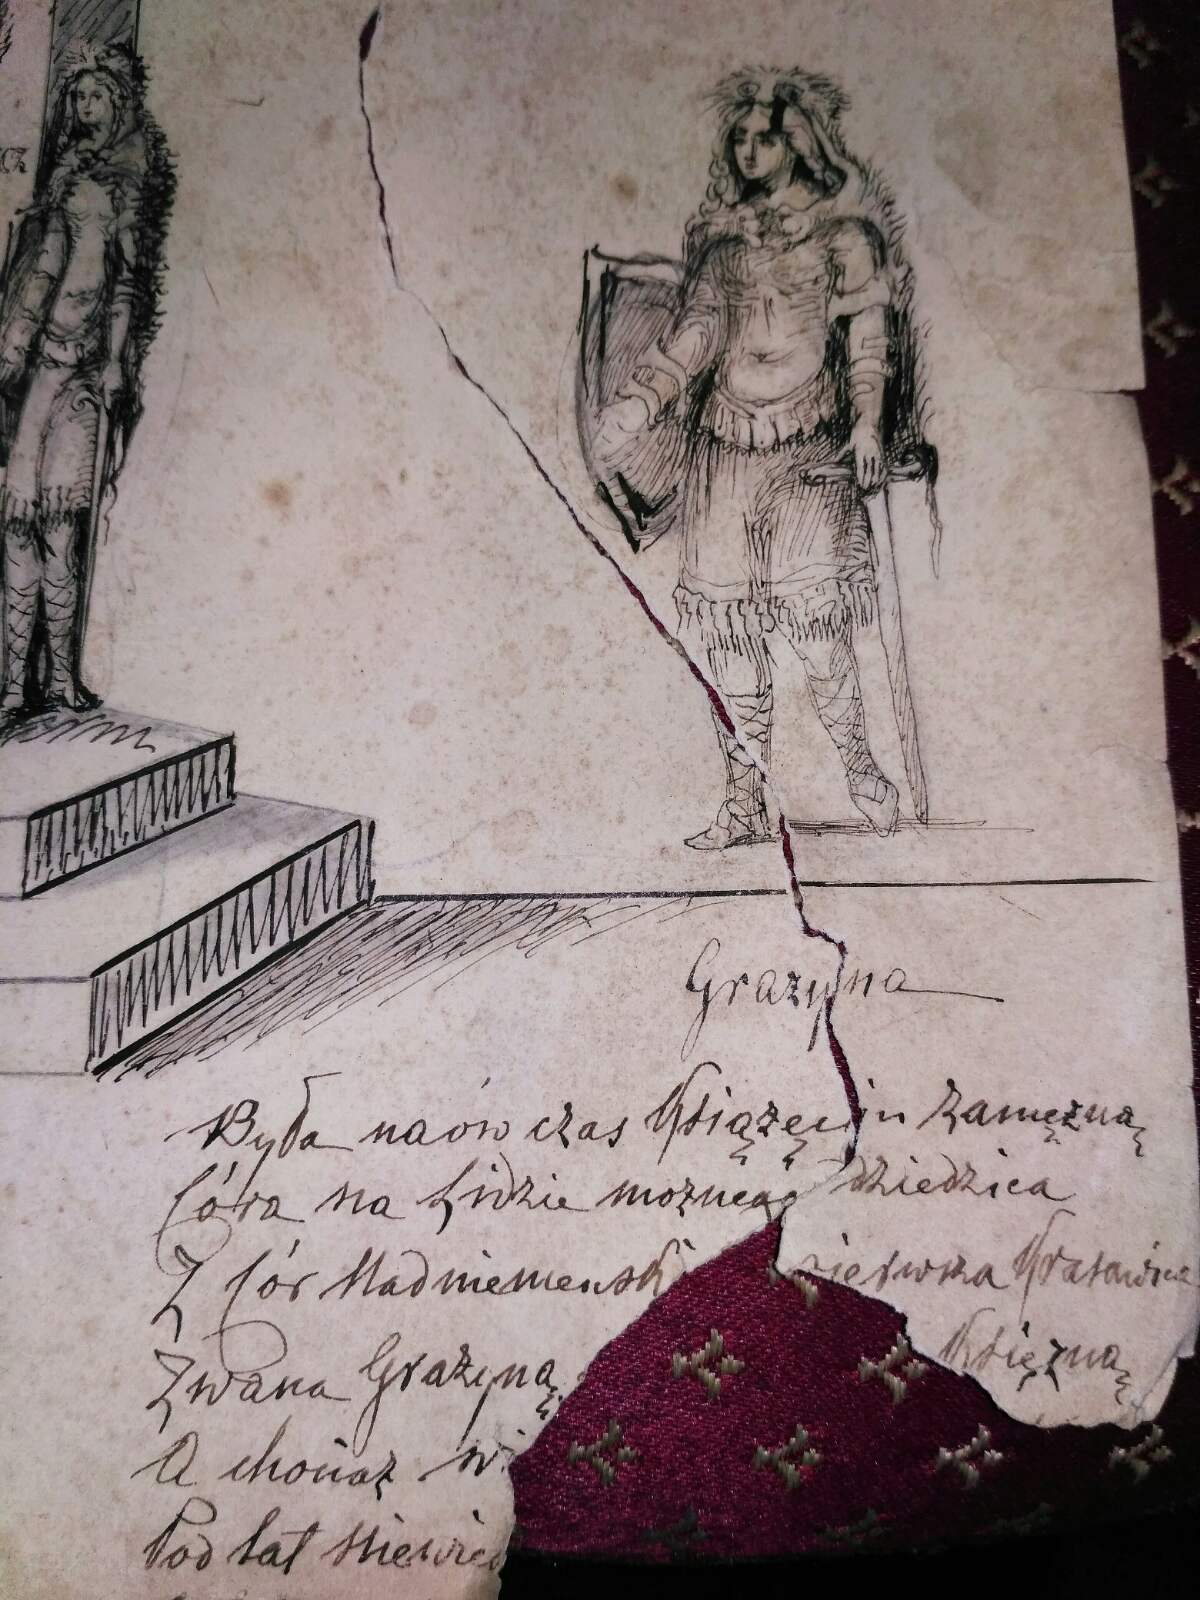 cz
Grażyna
Była naów czas Książęciu zamężną
Córa na Lidzie możnego dziedzica
Z Cór Nadniemeński pierwsza Krasawica
Zwana Grażyną Księżną
A chociaż wi
Pod lat niewieś